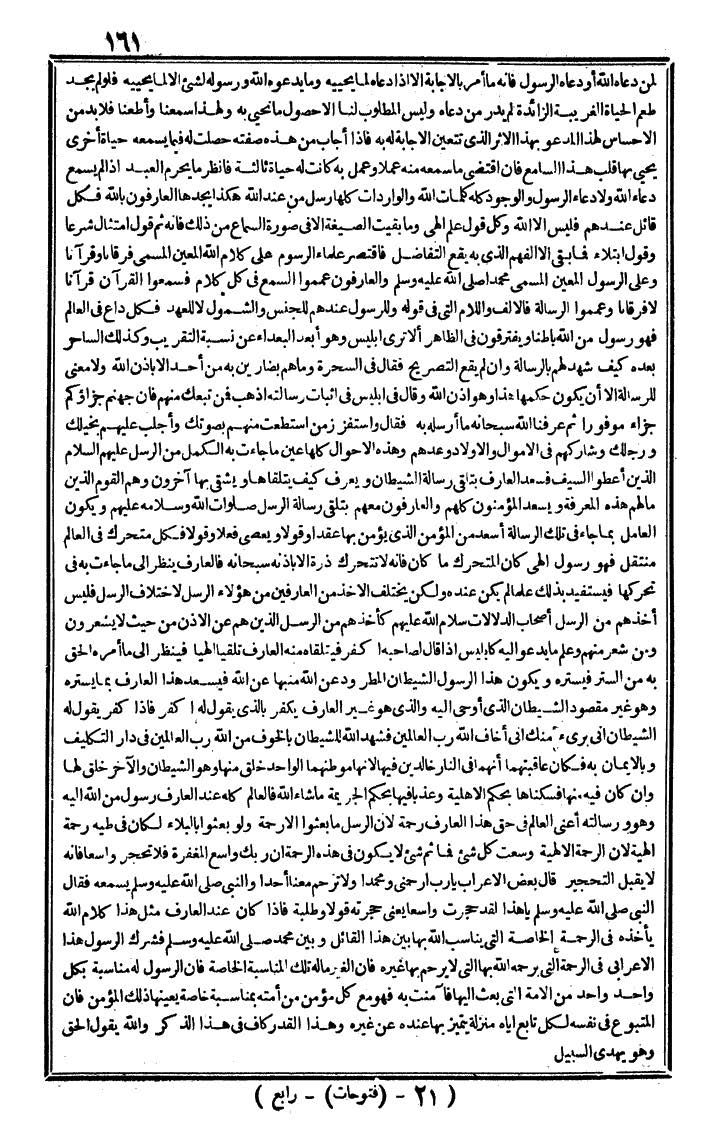 ١٦١
لمن دعاه الله أو دعاه الرسول فانه ما أمر بالاجابة الا اذا دعاه لما يحييه وما يدعوه الله ورسوله لشئ الا لما يحييه فلو لم يجد
طعم الحياة الغريبة الزائدة لم يدر من دعاه وليس المطلوب لنا الا حصول ما نحيي به ولهذا سمعنا وأطعنا فلا بد من
الاحساس لهذا المدعو بهذا الاثر الذى تتعين الاجابة له به فاذا أجاب من هذه صفته حصلت له فيما يسمعه حياة أخرى
يحيي بها قلب هذا السامع فان اقتضى ما سمعه منه عملا وعمل به كانت له حياة ثالثة فانظر ما يحرم العبد اذا لم يسمع
دعاء الله ولا دعاء الرسول والوجود كله كلمات الله والواردات كلها رسل من عند الله هكذا يجدها العارفون بالله فكل
قائل عندهم فليس الا الله وكل قول علم الهى وما بقيت الصيغة الا فى صورة السماع من ذلك فانه ثم قول امتثال شرعا
وقول ابتلاء فما بقى الا الفهم الذى به يقع التفاضل فاقتصر علماء الرسوم على كلام الله المعين المسمى فرقانا وقرآنا
وعلى الرسول المعين المسمى محمدا صلى الله عليه وسلم والعارفون عمموا السمع فى كل كلام فسمعوا القرآن قرآنا
لا فرقانا وعمموا الرسالة فالالف واللام التى فى قوله وللرسول عندهم للجنس والشمول لا للعهد فكل داع فى العالم
فهو رسول من الله باطنا ويفترقون فى الظاهر ألا ترى ابليس وهو أبعد البعداء عن نسبة التقريب وكذلك الساحر
بعده كيف شهد لهم بالرسالة وان لم يقع التصريح فقال فى السحرة وما هم بضارين به من أحد الا باذن الله ولا معنى
للرسالة الا أن يكون حكمها هذا وهو اذن الله وقال فى ابليس فى اثبات رسالته اذهب فمن تبعك منهم فان جهنم جزاؤكم
جزاء موفورا ثم عرفنا الله سبحانه ما أرسله به فقال واستفزز من استطعت منهم بصوتك وأجلب عليهم بخيلك
ورجلك وشاركهم فى الاموال والاولاد وعدهم وهذه الاحوال كلها عين ما جاءت به الكمل من الرسل عليهم السلام
الذين أعطوا السيف فسعد العارف بتلقى رسالة الشيطان ويعرف كيف يتلقاها ويشقى بها آخرون وهم القوم الذين
ما لهم هذه المعرفة ويسعد المؤمنون كلهم والعارفون معهم بتلقى رسالة الرسل صلوات الله وسلامه عليهم ويكون
العامل بما جاء فى تلك الرسالة أسعد من المؤمن الذى يؤمن بها عقدا وقولا ويعصى فعلا وقولا فكل متحرك فى العالم
منتقل فهو رسول الهى كان المتحرك ما كان فانه لا تتحرك ذرة الا باذنه سبحانه فالعارف ينظر الى ما جاءت به فى
تحركها فيستفيد بذلك علما لم يكن عنده ولكن يختلف الاخذ من العارفين من هؤلاء الرسل لاختلاف الرسل فليس
أخذهم من الرسل أصحاب الدلالات سلام الله عليهم كأخذهم من الرسل الذين هم عن الاذن من حيث لا يشعرون
ومن شعر منهم وعلم ما يدعو اليه كابليس اذ قال لصاحبه اكفر فيتلقاه منه العارف تلقيا الهيا فينظر الى ما أمره الحق
به من الستر فيستره ويكون هذا الرسول الشيطان المطرود عن الله منبها عن الله فيسعد هذا العارف بما يستره
وهو غير مقصود الشيطان الذى أوحى اليه والذى هو غير العارف يكفر بالذى يقول له اكفر فاذا كفر يقول له
الشيطان انى برىء منك انى أخاف الله رب العالمين فشهد الله للشيطان بالخوف من الله رب العالمين فى دار التكليف
وبالايمان به فكان عاقبتهما أنهما فى النار خالدين فيها لانها موطنهما الواحد خلق منها وهو الشيطان والآخر خلق لها
وان كان فيه منها فسكناها بحكم الاهلية وعذبا فيها بحكم الجريمة ما شاء الله فالعالم كله عند العارف رسول من الله اليه
وهو ورسالته أعنى العالم فى حق هذا العارف رحمة لان الرسل ما بعثوا الا رحمة ولو بعثوا بالبلاء لكان فى طيه رحمة
الهية لان الرحمة الالهية وسعت كل شئ فما ثم شئ لا يكون فى هذه الرحمة ان ربك واسع المغفرة فلا تحجر واسعا فانه
لا يقبل التحجير قال بعض الاعراب يا رب ارحمنى ومحمدا ولا ترحم معنا أحدا والنبى صلى الله عليه وسلم يسمعه فقال
النبى صلى الله عليه وسلم يا هذا لقد حجرت واسعا يعنى حجرته قولا وطلبة فاذا كان عند العارف مثل هذا كلام الله
يأخذه فى الرحمة الخاصة التى يناسب الله بها بين هذا القائل وبين محمد صلى الله عليه وسلم فشرك الرسول هذا
الاعرابى فى الرحمة التى يرحمه الله بها التى لا يرحم بها غيره فان الغير ماله تلك المناسبة الخاصة فان الرسول له مناسبة بكل
واحد واحد من الامة التى بعث اليها فآمنت به فهو مع كل مؤمن من أمته بمناسبة خاصة يعينها ذلك المؤمن فان
المتبوع فى نفسه لكل تابع اياه منزلة يتميز بها عنده عن غيره وهذا القدر كاف فى هذا الذكر والله يقول الحق
وهو يهدى السبيل
( ٢١ - (فتوحات) - رابع )